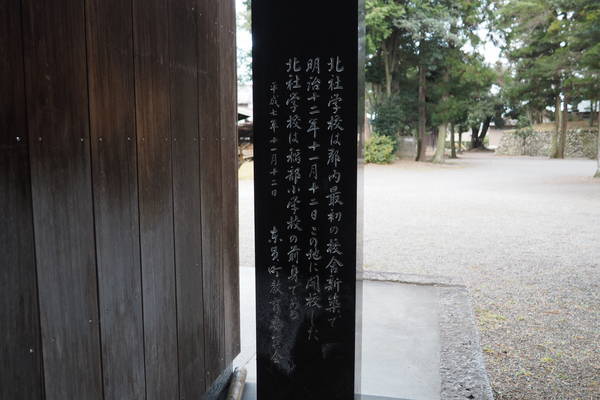 北社学校は郡内最初の校舎新築で
明治十二年十一月十二日この地に開校した
北社学校は稲部小学校の前身である
平成七年十一月十二日
東員町教育委員会